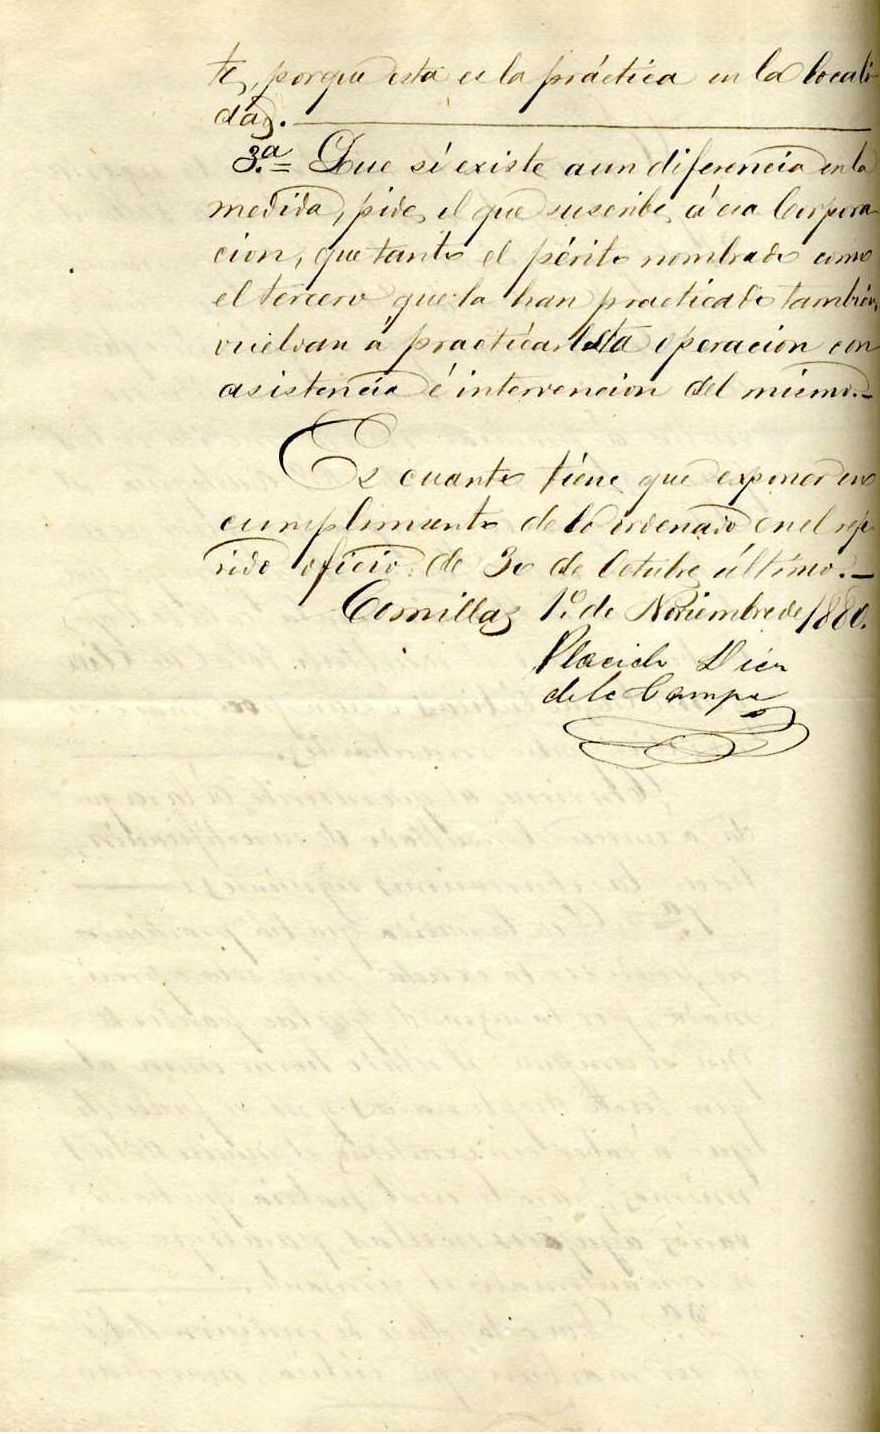 te, porque esta es la práctica en la locali-
dad.
3.ª = Que si existe aun diferencia en la
medida, pide, el que suscribe, á esa Corpora-
cion, que tanto el périto nombrado como
el tercero que la han practicado tambien,
vuelvan á practicar esta operacion con
asistencia é intervencion del mismo.-
Es cuanto tiene que exponer en
cumplimiento de lo ordenado en el refe-
rido oficio de 30 de Octubre último.-
Comillas 1.º de Noviembre de 1880.
Placido Diez
de la Campa